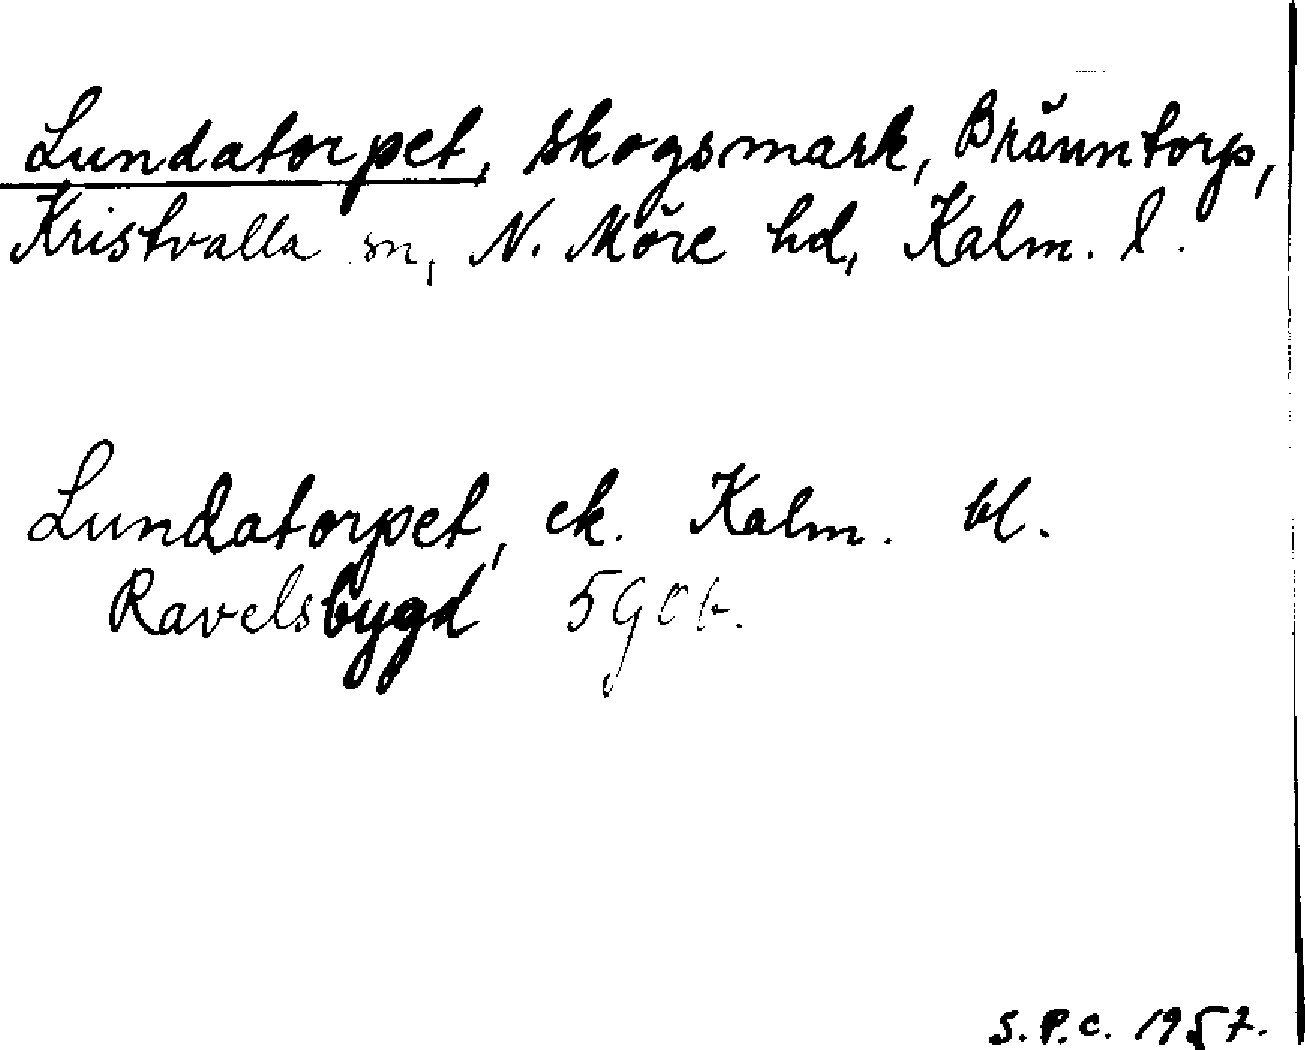 Lundatorpet, skogsmark, Bränntorp,
Kristvalla sn, N. Möre hd, Kalm. l.
Lundatorpet, ek. Kalm. bl.
Ravelsbygd 5g0b.
S.P.C. 1957.